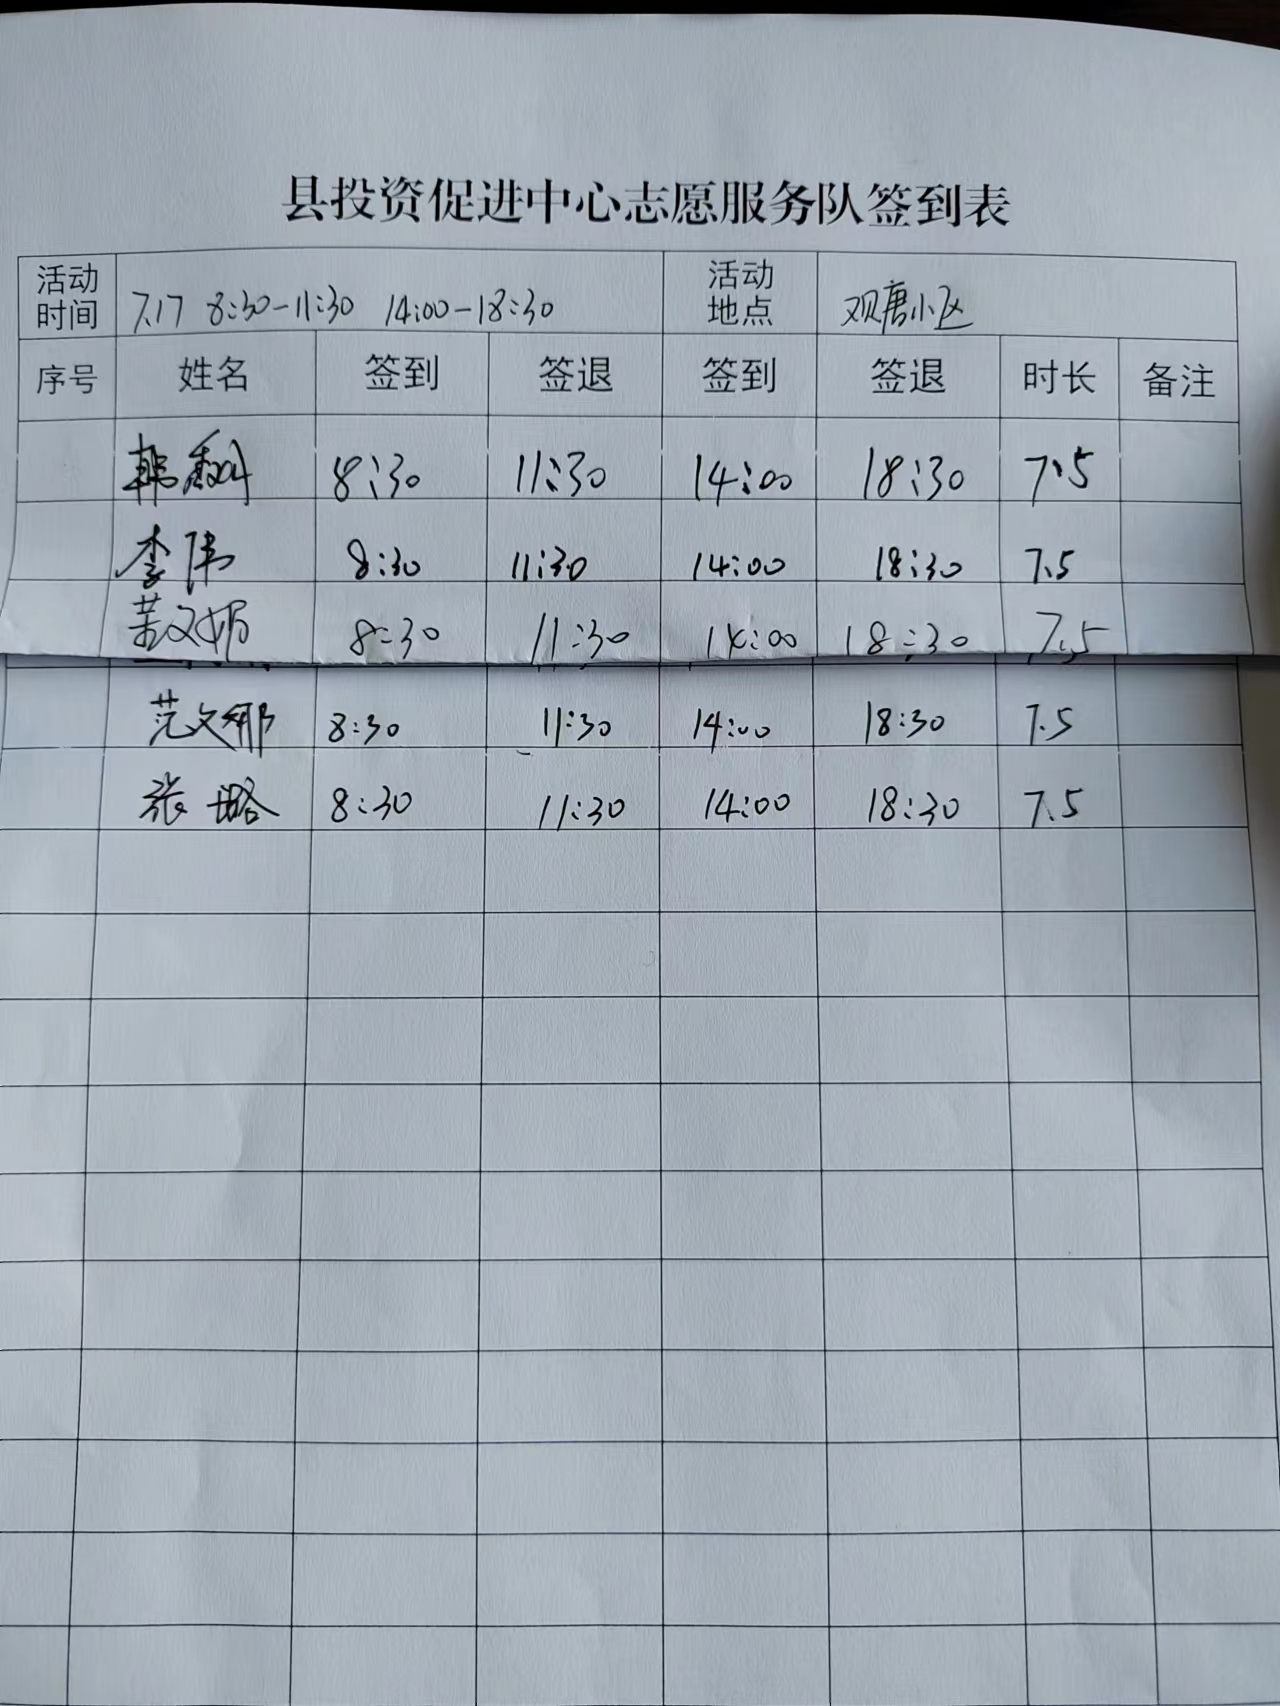 县投资促进中心志愿服务队签到表
活动时间 7.17 8:30-11:30 14:00-18:30 活动地点 观唐小区
序号 姓名 签到 签退 签到 签退 时长 备注
韩 8:30 11:30 14:00 18:30 7.5
李伟 8:30 11:30 14:00 18:30 7.5
文娟 8:30 11:30 14:00 18:30 7.5
范文娜 8:30 11:30 14:00 18:30 7.5
张璐 8:30 11:30 14:00 18:30 7.5